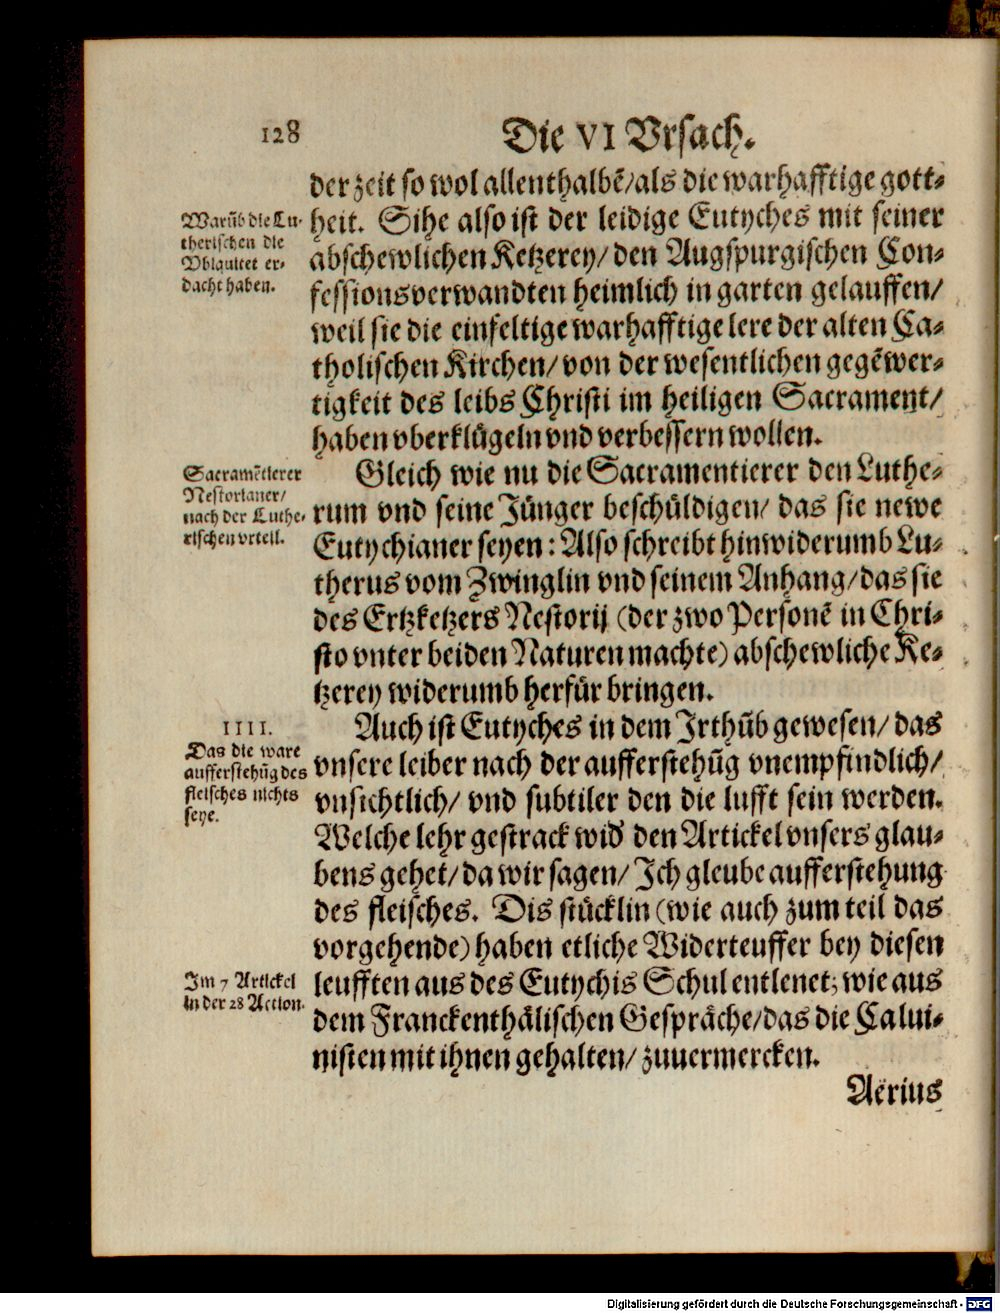 128
Die VI Vrsach.
der zeit so wol allenthalbē/als die warhafftige gott-
heit. Sihe also ist der leidige Eutyches mit seiner
abschewlichen Ketzerey/ den Augspurgischen Con-
fessionsverwandten heimlich in garten gelauffen/
weil sie die einfeltige warhafftige lere der alten Ca-
tholischen Kirchen/ von der wesentlichen gegēwer-
tigkeit des leibs Christi im heiligen Sacrament/
haben vberklügeln vnd verbessern wollen.
Warūb die Lu-
therischen die
Vbiquitet er-
dacht haben.
Gleich wie nu die Sacramentierer den Luthe-
rum vnd seine Jünger beschüldigen/ das sie newe
Eutychianer seyen: Also schreibt hinwiderumb Lu-
therus vom Zwinglin vnd seinem Anhang/das sie
des Ertzketzers Nestorij (der zwo Personē in Chri-
sto vnter beiden Naturen machte) abschewliche Ke-
tzerey widerumb herfür bringen.
Sacramētierer
Nestorianer/
nach der Luthe-
rischen vrteil.
Auch ist Eutyches in dem Jrthūb gewesen/ das
vnsere leiber nach der aufferstehūg vnempfindlich/
vnsichtlich/ vnd subtiler den die lufft sein werden.
Welche lehr gestrack wid' den Artickel vnsers glau-
bens gehet/ da wir sagen/ Jch gleube aufferstehung
des fleisches. Dis stücklin (wie auch zum teil das
vorgehende) haben etliche Widerteuffer bey diesen
leufften aus des Eutychis Schul entlenet; wie aus
dem Franckenthälischen Gespräche/das die Calui-
nisten mit ihnen gehalten/ zuuermercken.
IIII.
Das die ware
aufferstehūg des
fleisches nichts
seye.
Im 7 Artickel
in der 28 Action.
Aërius
Digitalisierung gefördert durch die Deutsche Forschungsgemeinschaft - DFG